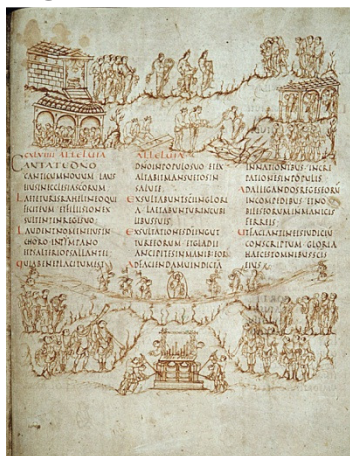 CXLVIIII ALLELUIA
CANTATE DNO
CANTICUM NOUUM LAUS
EIUS IN ECCLESIA SCORUM
LAETETUR ISRAHEL IN EO QUI
FECIT EUM ET FILII SION EX
SULTENT IN REGE SUO
LAUDENT NOMEN EIUS IN
CHORO IN TYMPANO
ET PSALTERIO PSALLANT EI
QUIA BENEPLACITUM EST
ALLELUIA
DNO IN POPULO SUO ET EX
ALTABIT MANSUETOS IN
SALUTE
EXSULTABUNT SCI IN GLORI
A LAETABUNTUR IN CUBI
LIBUS SUIS
EXSULTATIONES DI IN GUT
TURE EORUM ET GLADII
ANCIPITES IN MANIB EOR
AD FACIENDAM UINDICTA
IN NATIONIBUS INCRE
PATIONES IN POPULIS
AD ALLIGANDOS REGES EORU
IN COMPEDIBUS ET NO
BILES EORUM IN MANICIS
FERREIS
UT FACIANT IN EIS IUDICIU
CONSCRIPTUM GLORIA
HAEC EST OMNIBUS SCIS
EIUS